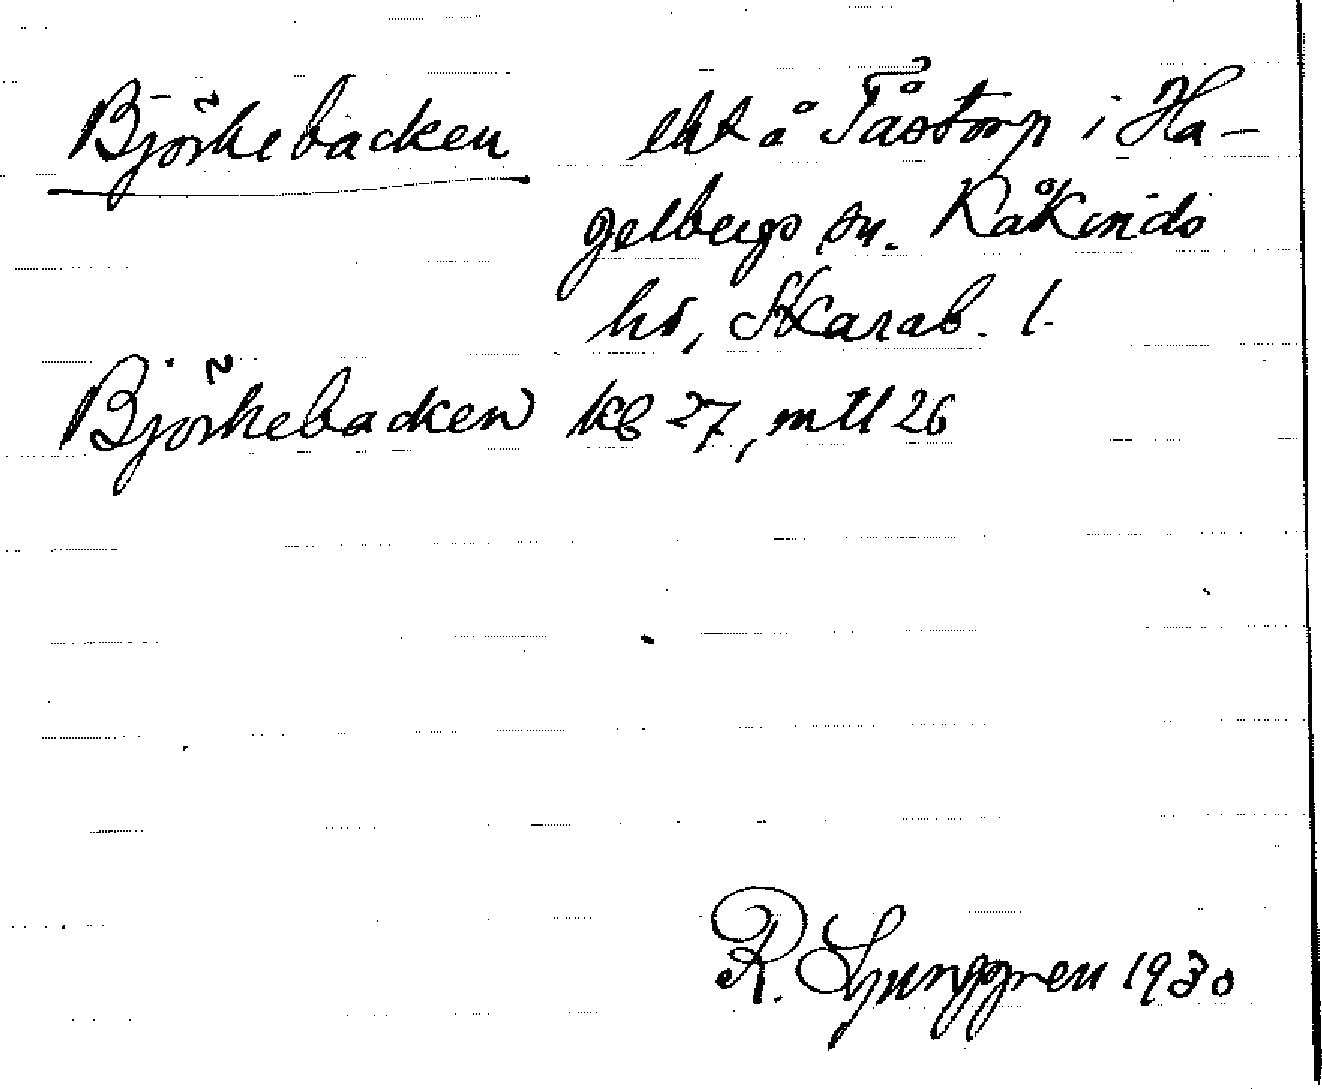 Björkebacken eht å Tåstorp i Ha-
gelbergs sn. Kåkinds
hd, Skarab. l.
Björkebacken kb 27, mtl 26
R. Ljunggren 1930